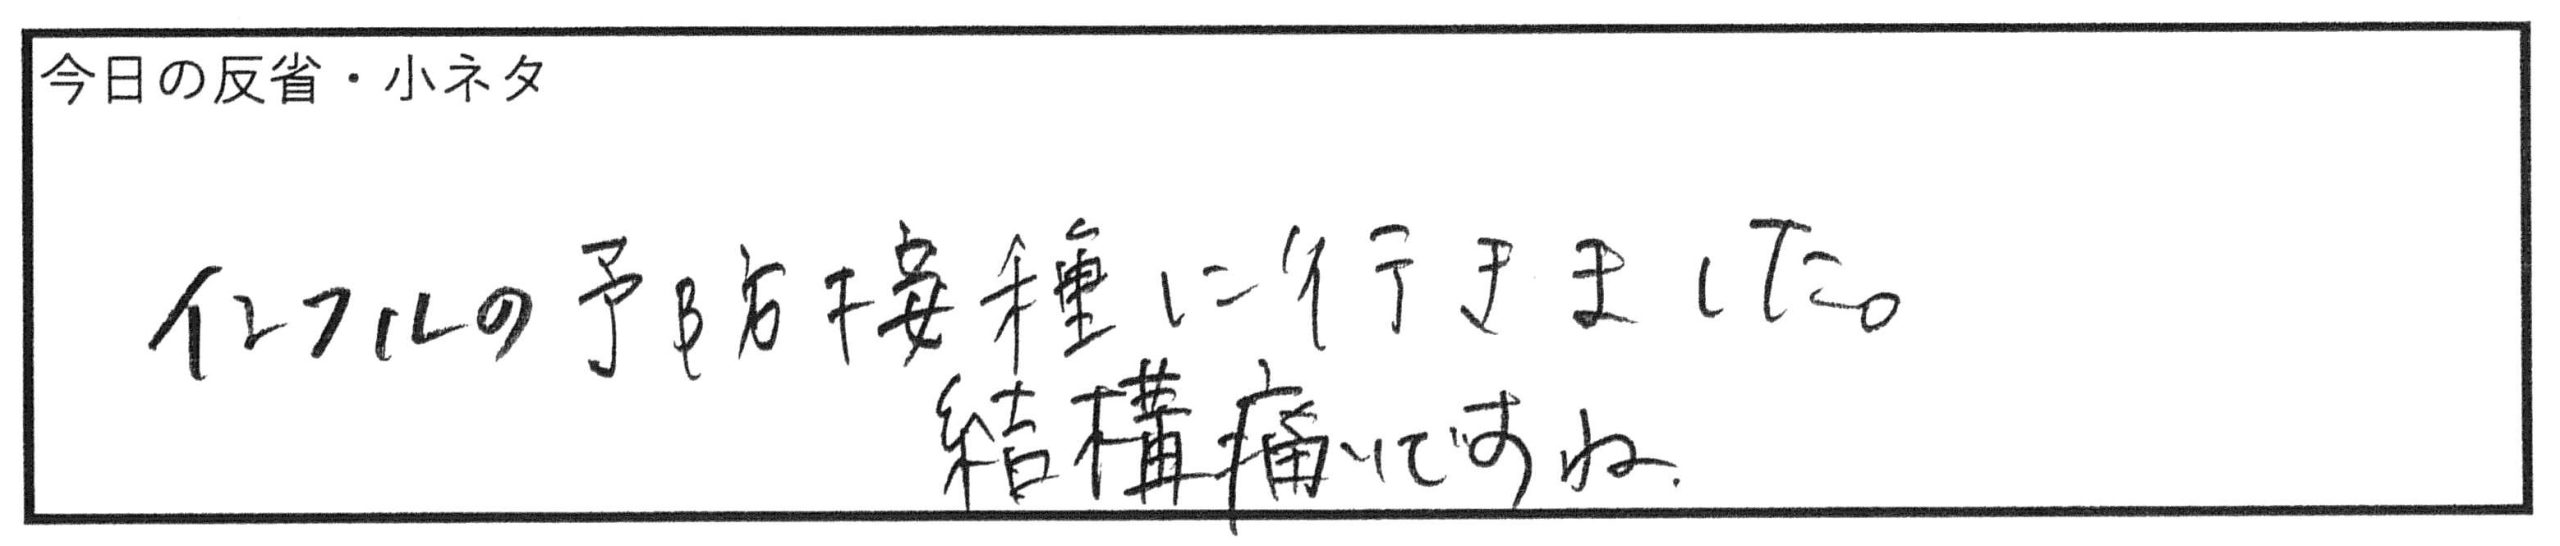 今日の反省・小ネタ
インフルの予防接種に行きました。
結構痛いですね.